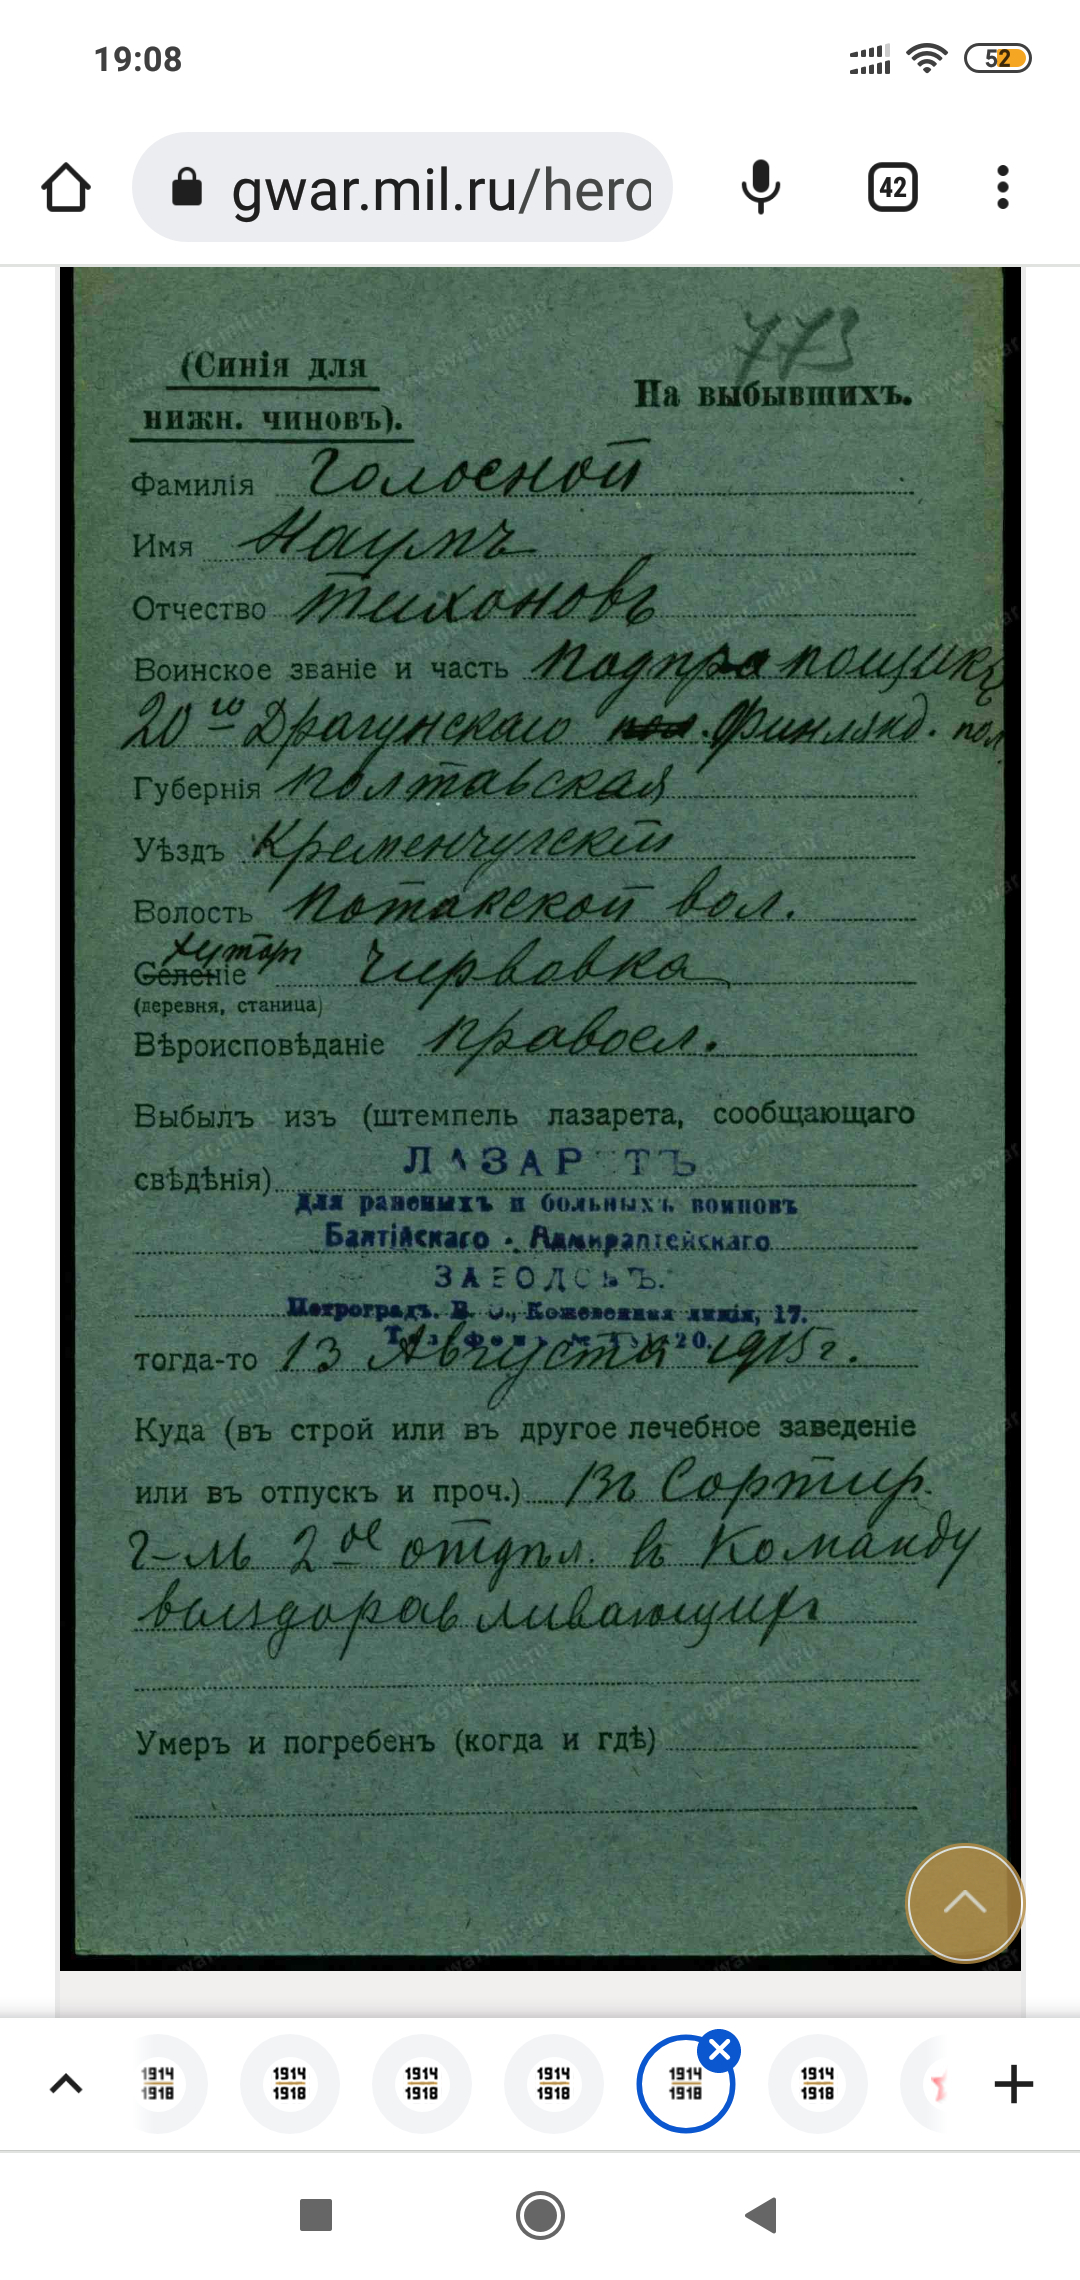 19:08
52
gwar.mil.ru/hero
42
773
(Синія для
нижн. чиновъ).
На выбывшихъ.
Фамилія Голосной
Имя Наумъ
Отчество Тихоновъ
Воинское званіе и часть подпрапощикъ
20го Драгунскаго Финлянд. пол
Губернія Полтавская
Уѣздъ Кременчугскій
Волость Потокской вол.
Селеніе хутор Чирвовка
(деревня, станица)
Вѣроисповѣданіе правосл.
Выбылъ изъ (штемпель лазарета, сообщающаго
свѣдѣнія)
ЛАЗАРЕТЪ
для раненыхъ и больныхъ воиновъ
Балтійскаго - Адмиралтейскаго
ЗАВОДОВЪ.
Петроградъ. В. О., Кожевенная линія, 17.
тогда-то 13 Августа 1915 г.
Куда (въ строй или въ другое лечебное заведеніе
или въ отпускъ и проч.) Въ Сортир.
г-ль 2ое отдѣл. въ Команду
выздоравливающихъ
Умеръ и погребенъ (когда и гдѣ)
1914
1918
1914
1918
1914
1918
1914
1918
1914
1918
1914
1918